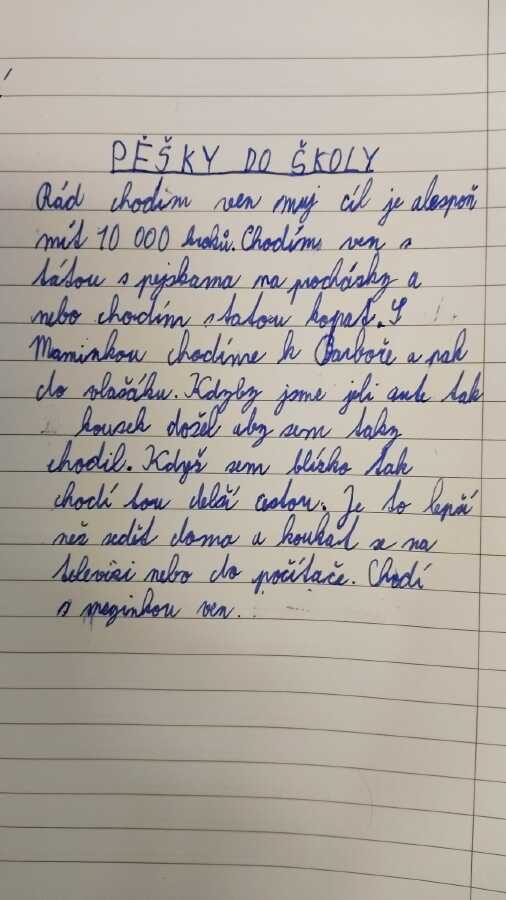 PĚŠKY DO ŠKOLY
Rád chodím ven muj cíl je alespoň
mít 10 000 kroků. Chodím ven s
tátou s pejskama na procházky a
nebo chodím s tatou kopat. S
Maminkou chodíme k Barboře a pak
do vlašáku. Kdyby jsme jeli autem tak
kousek došel aby sem taky
chodil. Když sem blízko tak
chodí tou delší cestou. Je to lepší
než sedět doma a koukat se na
televisi nebo do počítače. Chodí
s meginkou ven.